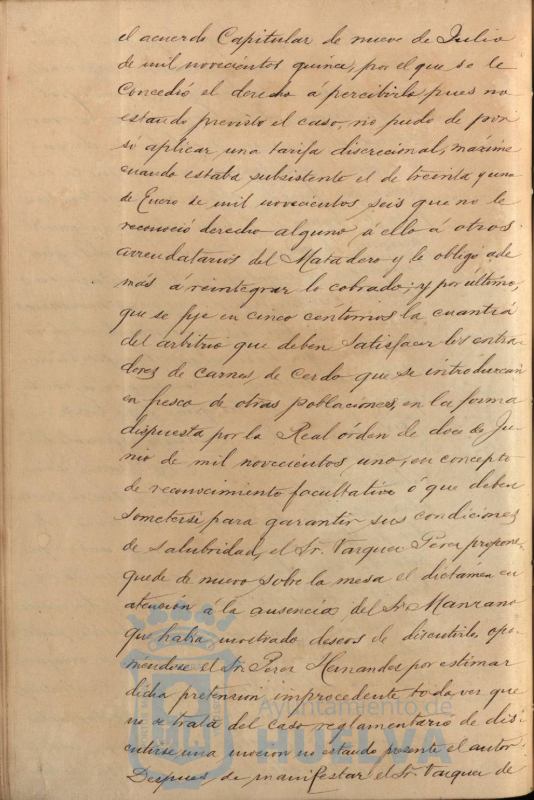 el acuerdo Capitular de nueve de Julio
de mil novecientos quince, por el que se le
concedió el derecho á percibirlo pues no
estando previsto el caso, no pudo de por
sí aplicar una tarifa discrecional, máxime
cuando estaba subsistente el de treinta y uno
de Enero de mil novecientos seis que no le
reconoció derecho alguno á ello á otros
arrendatarios del Matadero y le obligó ade
más á reintegrar lo cobrado; y por último,
que se fije en cinco céntimos la cuantía
del arbitrio que deben satisfacer los entra-
dores de carnes de cerdo que se introduzcan
en fresco de otras poblaciones, en la forma
dispuesta por la Real órden de doce de Ju-
nio de mil novecientos uno, en concepto
de reconocimiento facultativo á que deben
someterse para garantir sus condiciones
de salubridad, el Sr. Vazquez Perez propone
quede de nuevo sobre la mesa el dictámen en
atención á la ausencia del Sr. Manzano
que había mostrado deseos de discutirlo, opo-
niéndose el Sr. Perez Hernandez por estimar
dicha pretensión improcedente toda vez que
no se trata del caso reglamentario de dis-
cutirse una moción no estando presente el autor.
Despues de manifestar el Sr. Vazquez de
Ayuntamiento de
HUELVA